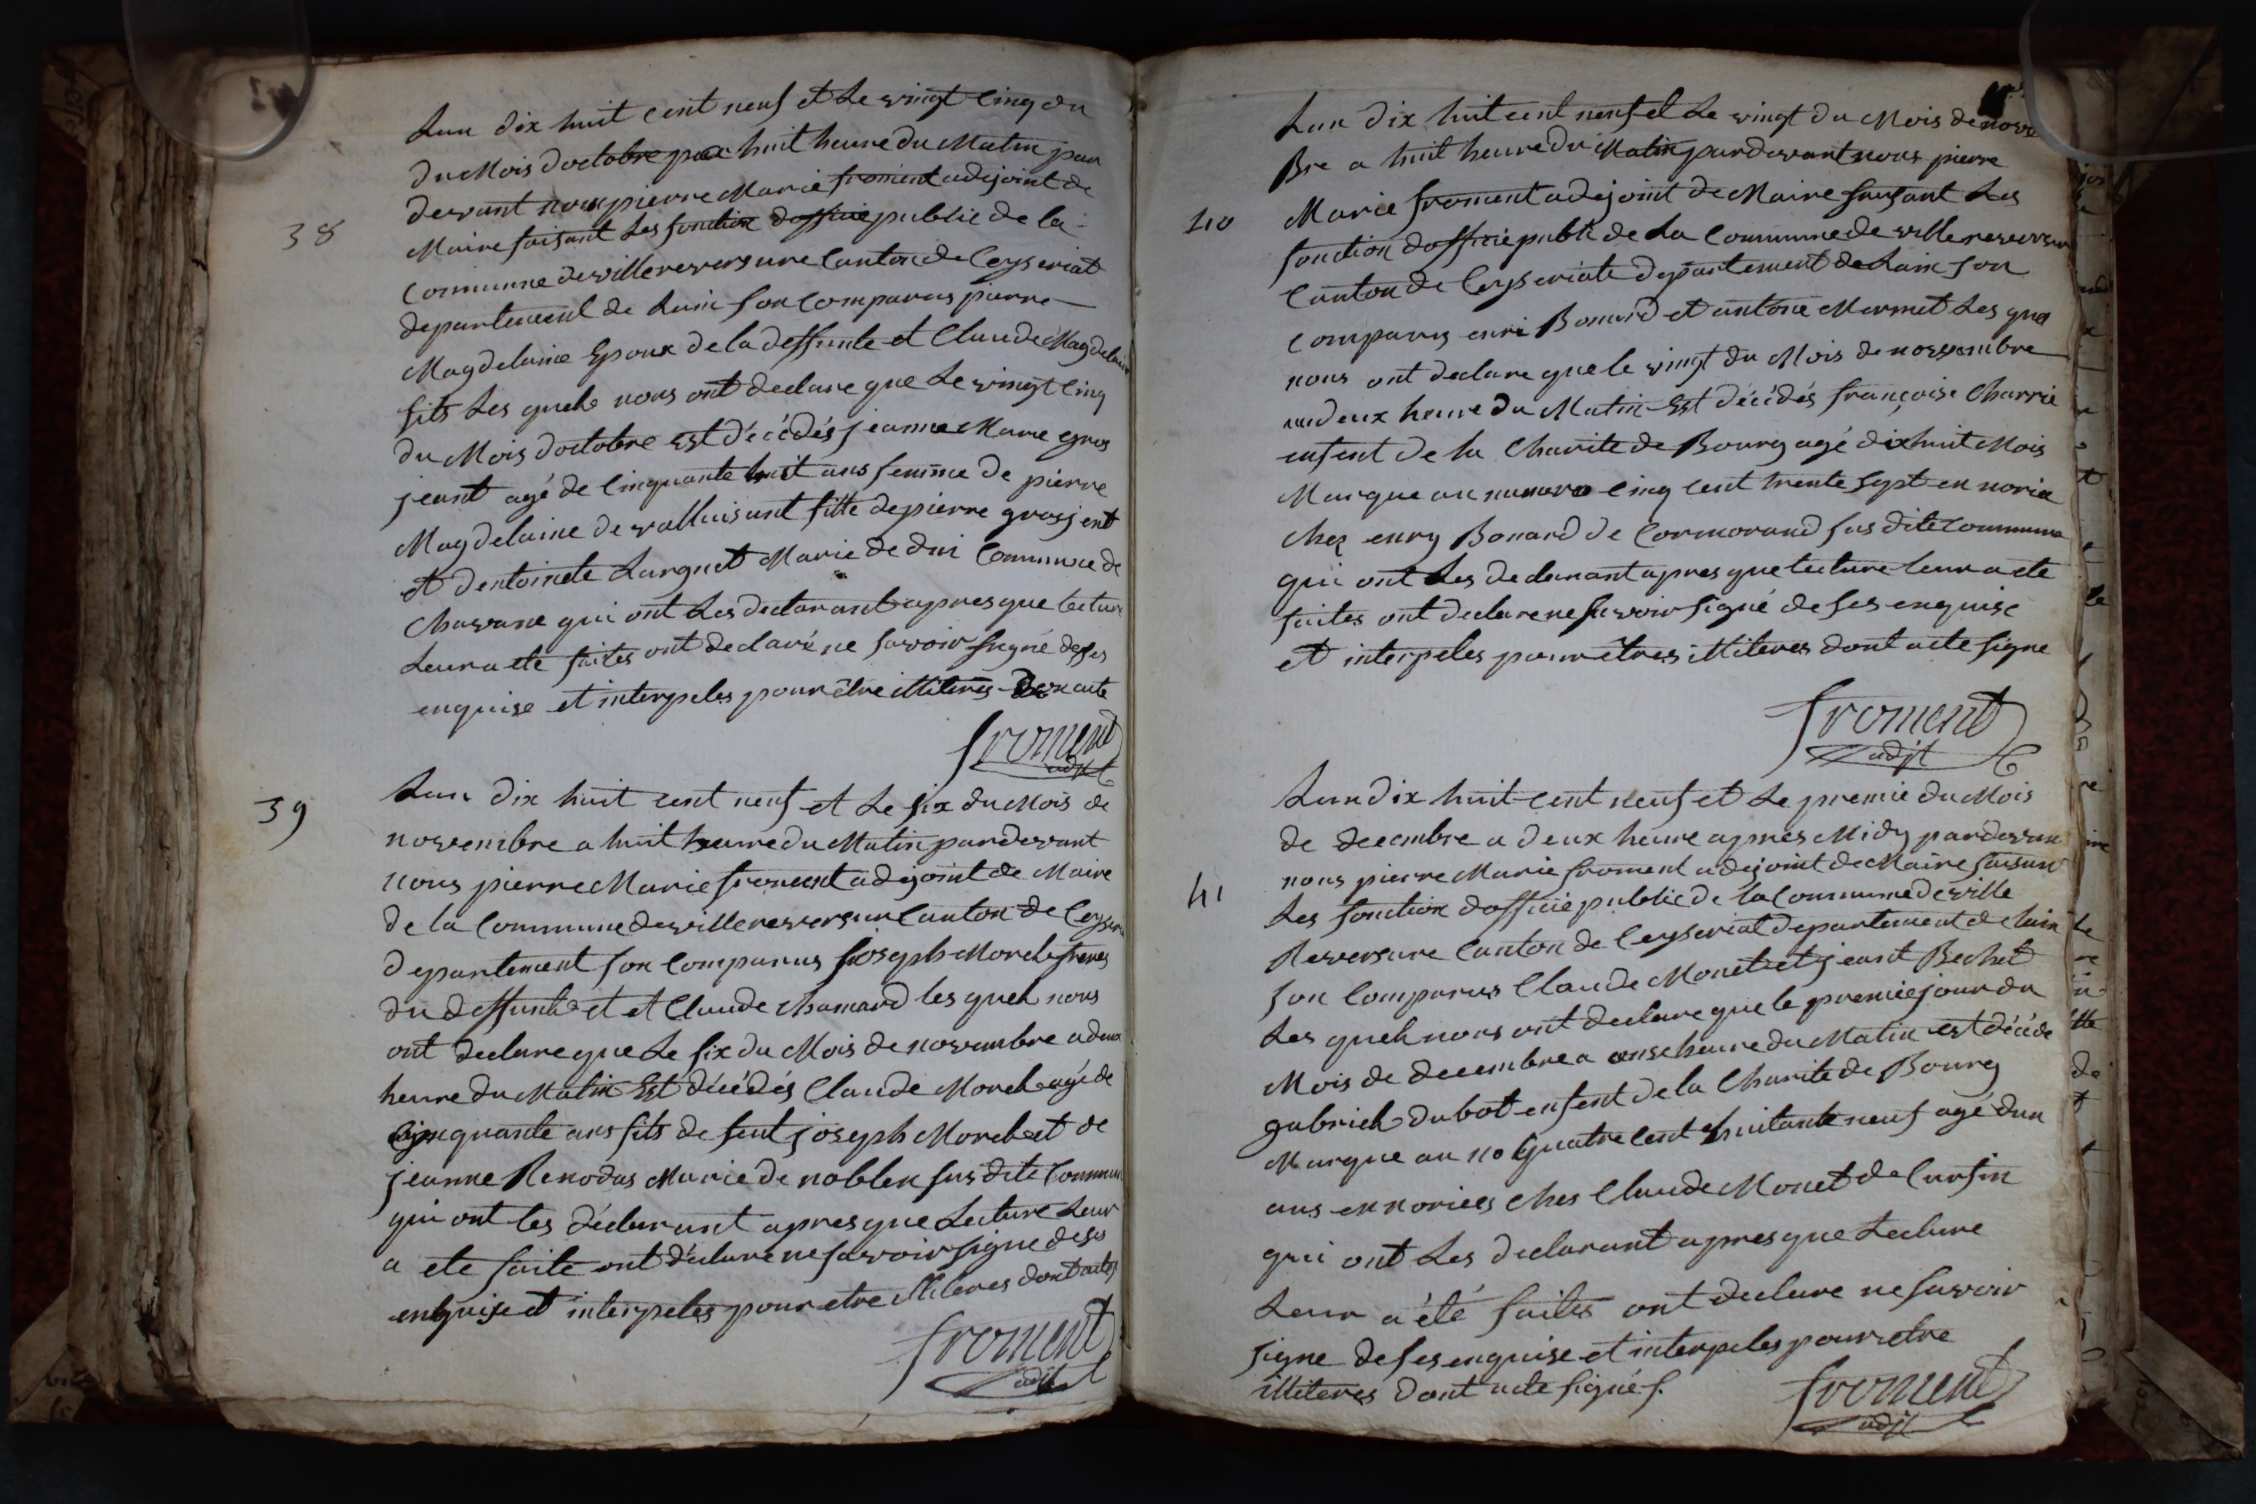 Lan dix huit cent neuf et Le vingt Cinq du
du Mois doctobre par huit heure du Matin par
devant nous pierre Marie froment adejoint de
38
Maire faisant Les fonction dofficie public de la
Commune de villereversure Canton de Ceyseriat
departement de Lain son Comparus pierre
Magdelaine Epoux de la deffunte et Claude Magdelaine
fils Les quels nous ont declare que Le vingt Cinq
du Mois doctobre Est décédés jeanne Marie gros
jeant agé de Cinquante huit ans femme de pierre
Magdelaine de valluisant fille de pierre grosjent
et dentoinete Largnet Marie de dui Commune de
Chavane qui ont Les declarant apres que lecture
Leur a ete faites ont declaré ne savoir signé de ses
enquise et interpeles pour être illiteres Dont acte
froment
adjt
39
Lan dix huit cent neuf et Le six du Mois de
novembre a huit heure du Matin pardevant
nous pierre Marie froment adejoint de Maire
de la Commune de villereversure Canton de Ceyseria
departement son Comparus joseph Morel freres
du deffunt et et Claude Chamard les quels nous
ont declare que Le six du Mois de novembre a deux
heure du Matin Est décédés Claude Morel agé de
Cinquante ans fils de feut joseph Morel et de
jeanne Renodas Marie de noblen sus dite Commune
qui ont les déclarant apres que Lecture Leur
a ete faite ont déclaré ne savoir signe de ses
enquise et interpeles pour etre illiteres dont actes
froment
adjt
Lan dix huit cent neuf et Le vingt du Mois de novem
Bre a huit heure du Matin pardevant nous pierre
40
Marie froment adejoint de Maire faisant Les
fonction dofficie publi de La Commune de villereversure
Canton de Ceyseriate departement de Lain son
Comparus enri Bonard et antoine Mermet Les quel
nous ont declare que le vingt du Mois de novembre
a deux heure du Matin Est décédés françoise Charrie
enfent de la Charite de Bourg agé dix huit Mois
Marque au numero Cinq cent trente sept en norice
Chez enry Bonard de Cormorand sus dite Commune
qui ont Les declarant apres que lecture leur a ete
faites ont declare ne savoir signé de ses enquise
et interpeles pour êtres illiteres dont acte signe
froment
adjt
Lan dix huit cent neuf et Le premie du Mois
de decembre a deux heure apres Midy pardevan
nous pierre Marie froment adejoint de Maire faisant
41
Les fonction dofficie public de la Commune de ville
Reversure Canton de Ceyseriat departement de Lain
son Comparus Claude Monet et jeant Bechet
Les quels nous ont declare que le premie jour du
Mois de decembre a onse heure du Matin est décéde
gabriel dubot enfent de la Charite de Bourg
Marque au no Quatre cent huitante neuf agé dun
ans en norices Ches Claude Monet de Cursin
qui ont Les declarant apres que Lecture
Leur a été faites ont declare ne savoir
signe de ses enquise et interpeles pour etre
illiteres dont acte signé f.
froment
adjt